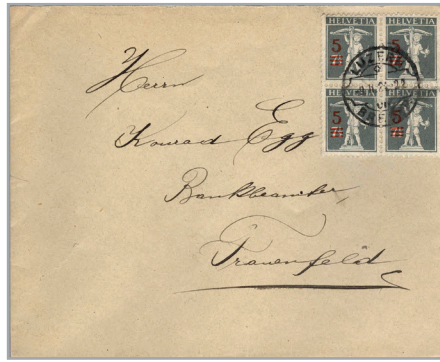 HELVETIA HELVETIA
5 5
HELVETIA HELVETIA
5 5
LUZERN
Herrn
Konrad Egg
Bankbeamter,
Frauenfeld